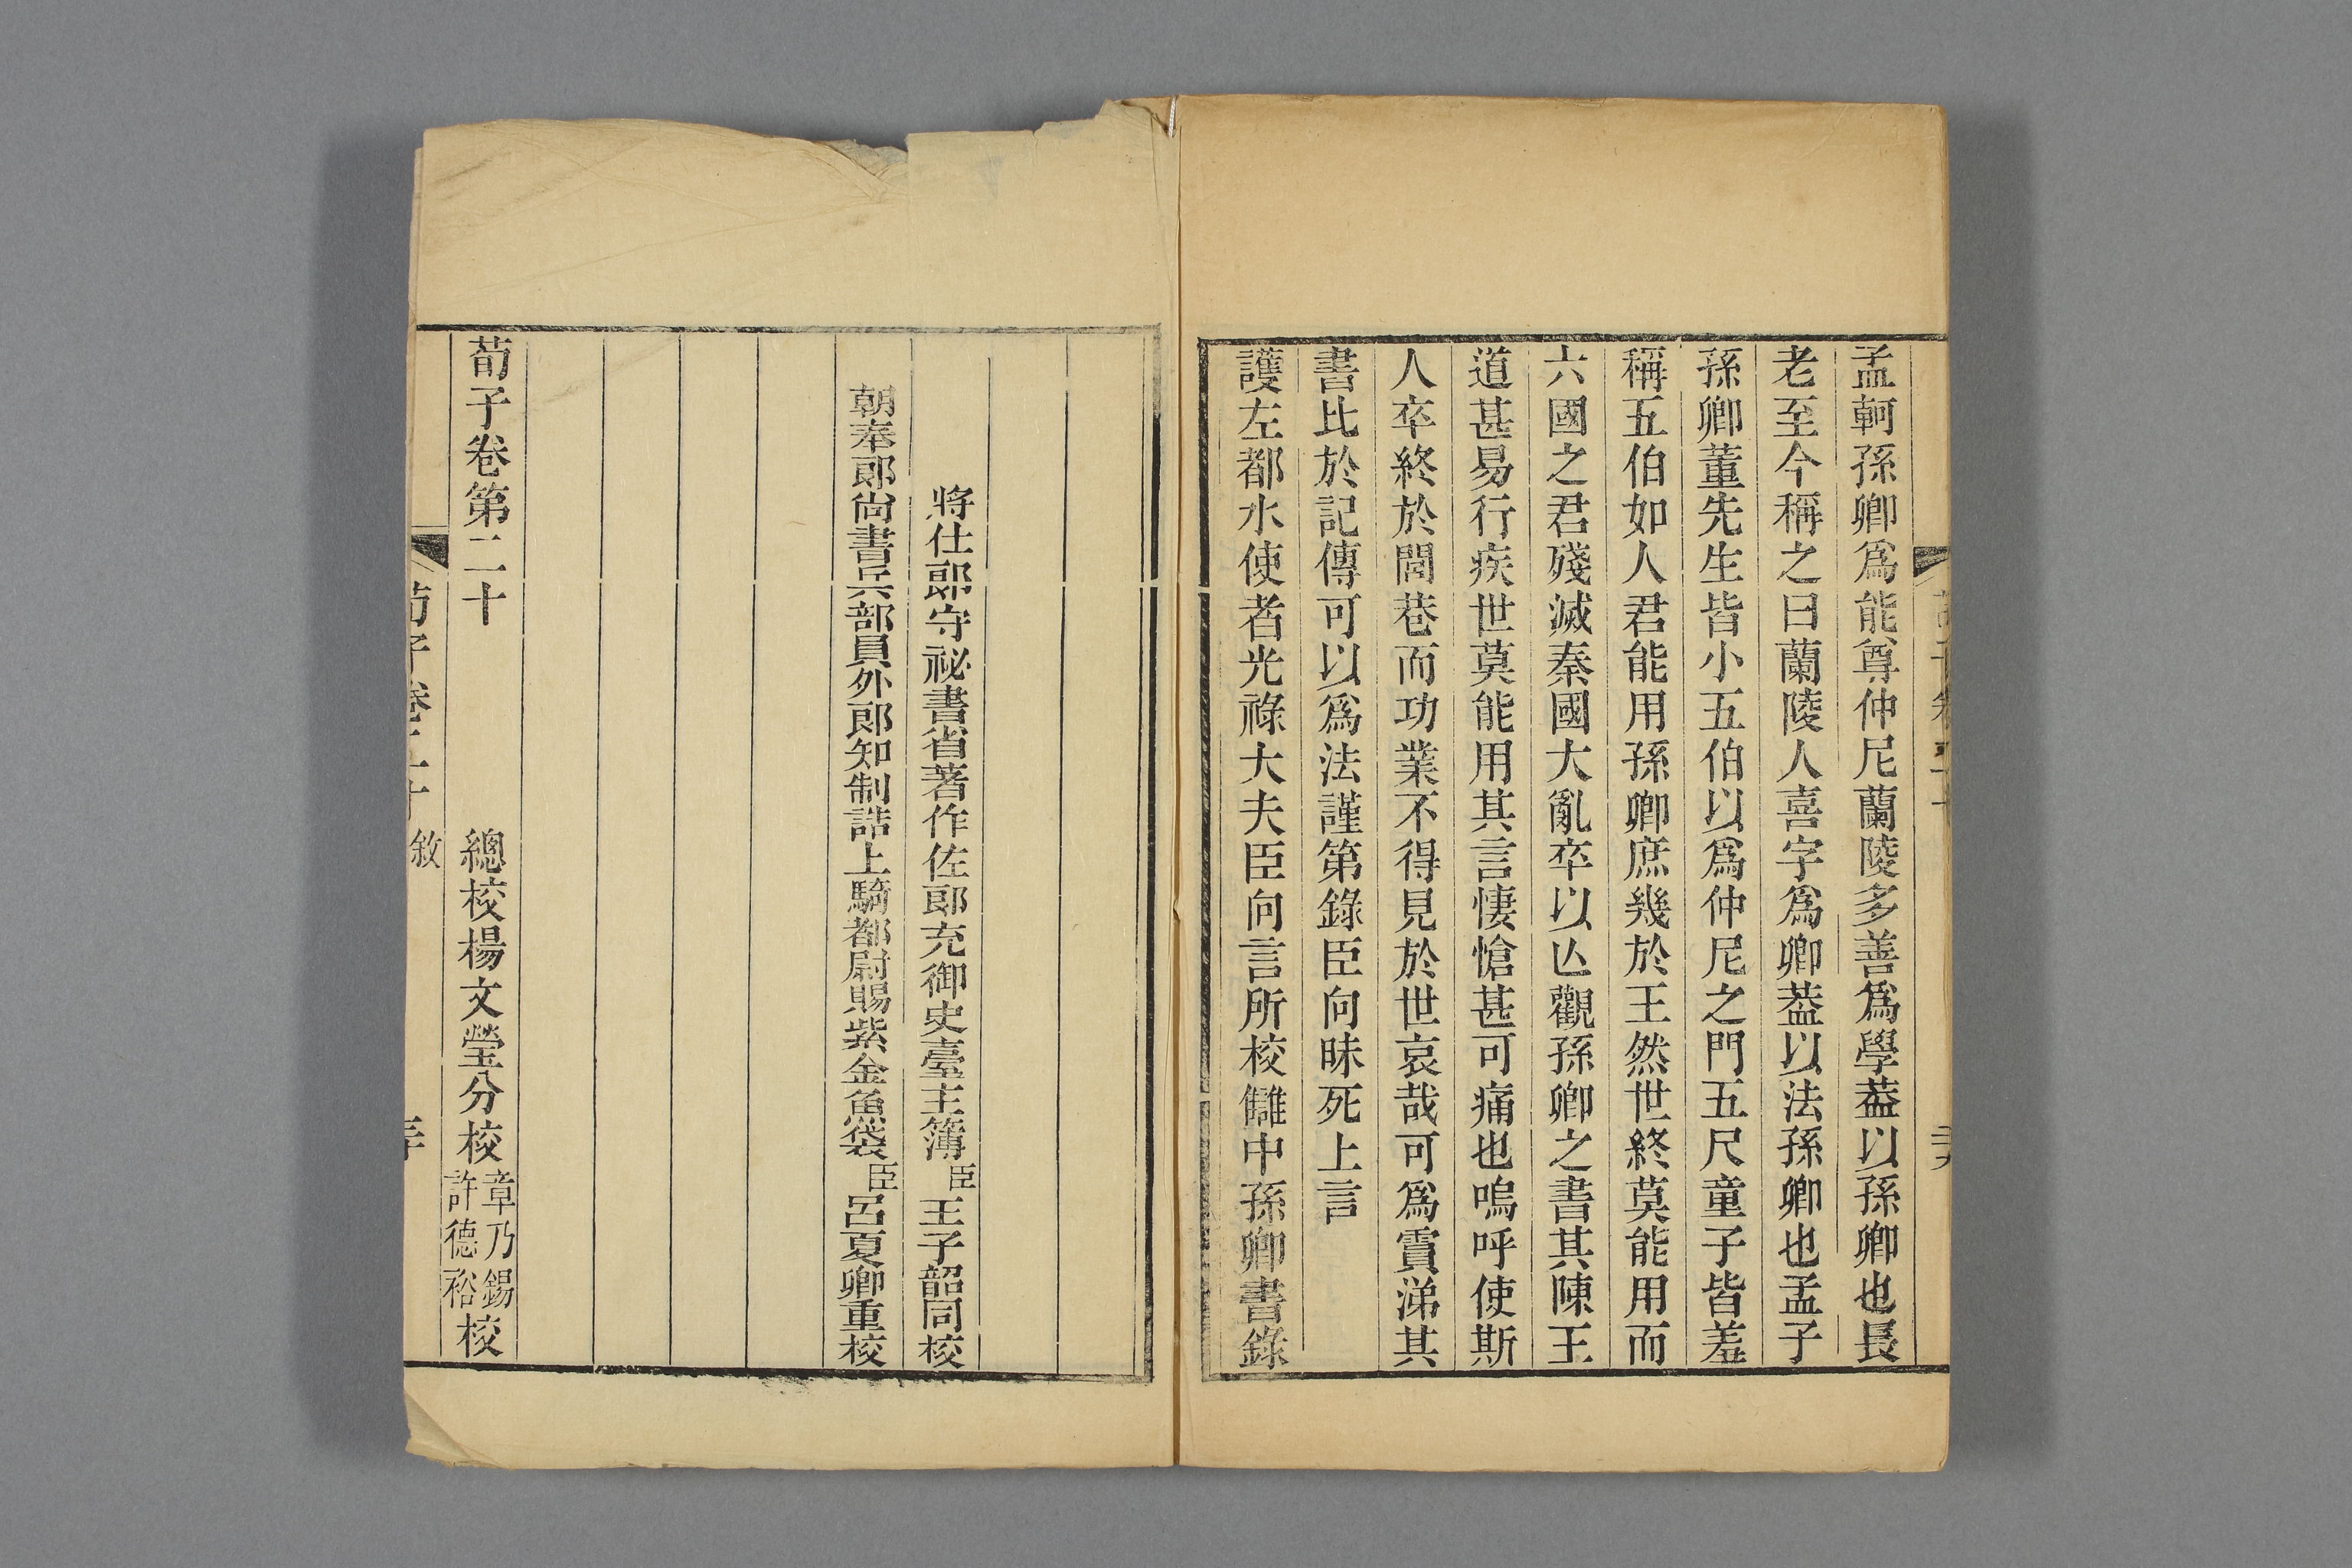 孟軻孫卿爲能尊仲尼蘭陵多善爲學葢以孫卿也長
老至今稱之曰蘭陵人喜字爲卿葢以法孫卿也孟子
孫卿董先生皆小五伯以爲仲尼之門五尺童子皆羞
稱五伯如人君能用孫卿庶幾於王然世終莫能用而
六國之君殘滅秦國大亂卒以亾觀孫卿之書其陳王
道甚易行疾世莫能用其言悽愴甚可痛也嗚呼使斯
人卒終於閭巷而功業不得見於世哀哉可爲霣涕其
書比於記傳可以爲法謹第錄臣向昧死上言
護左都水使者光祿大夫臣向言所校讎中孫卿書錄
將仕郎守祕書省著作佐郎充御史臺主簿臣王子韶同校
朝奉郎尙書兵部員外郎知制誥上騎都尉賜紫金魚袋臣呂夏卿重校
荀子卷第二十
總校楊文瑩分校章乃錫許德裕校
荀子卷二十
敘